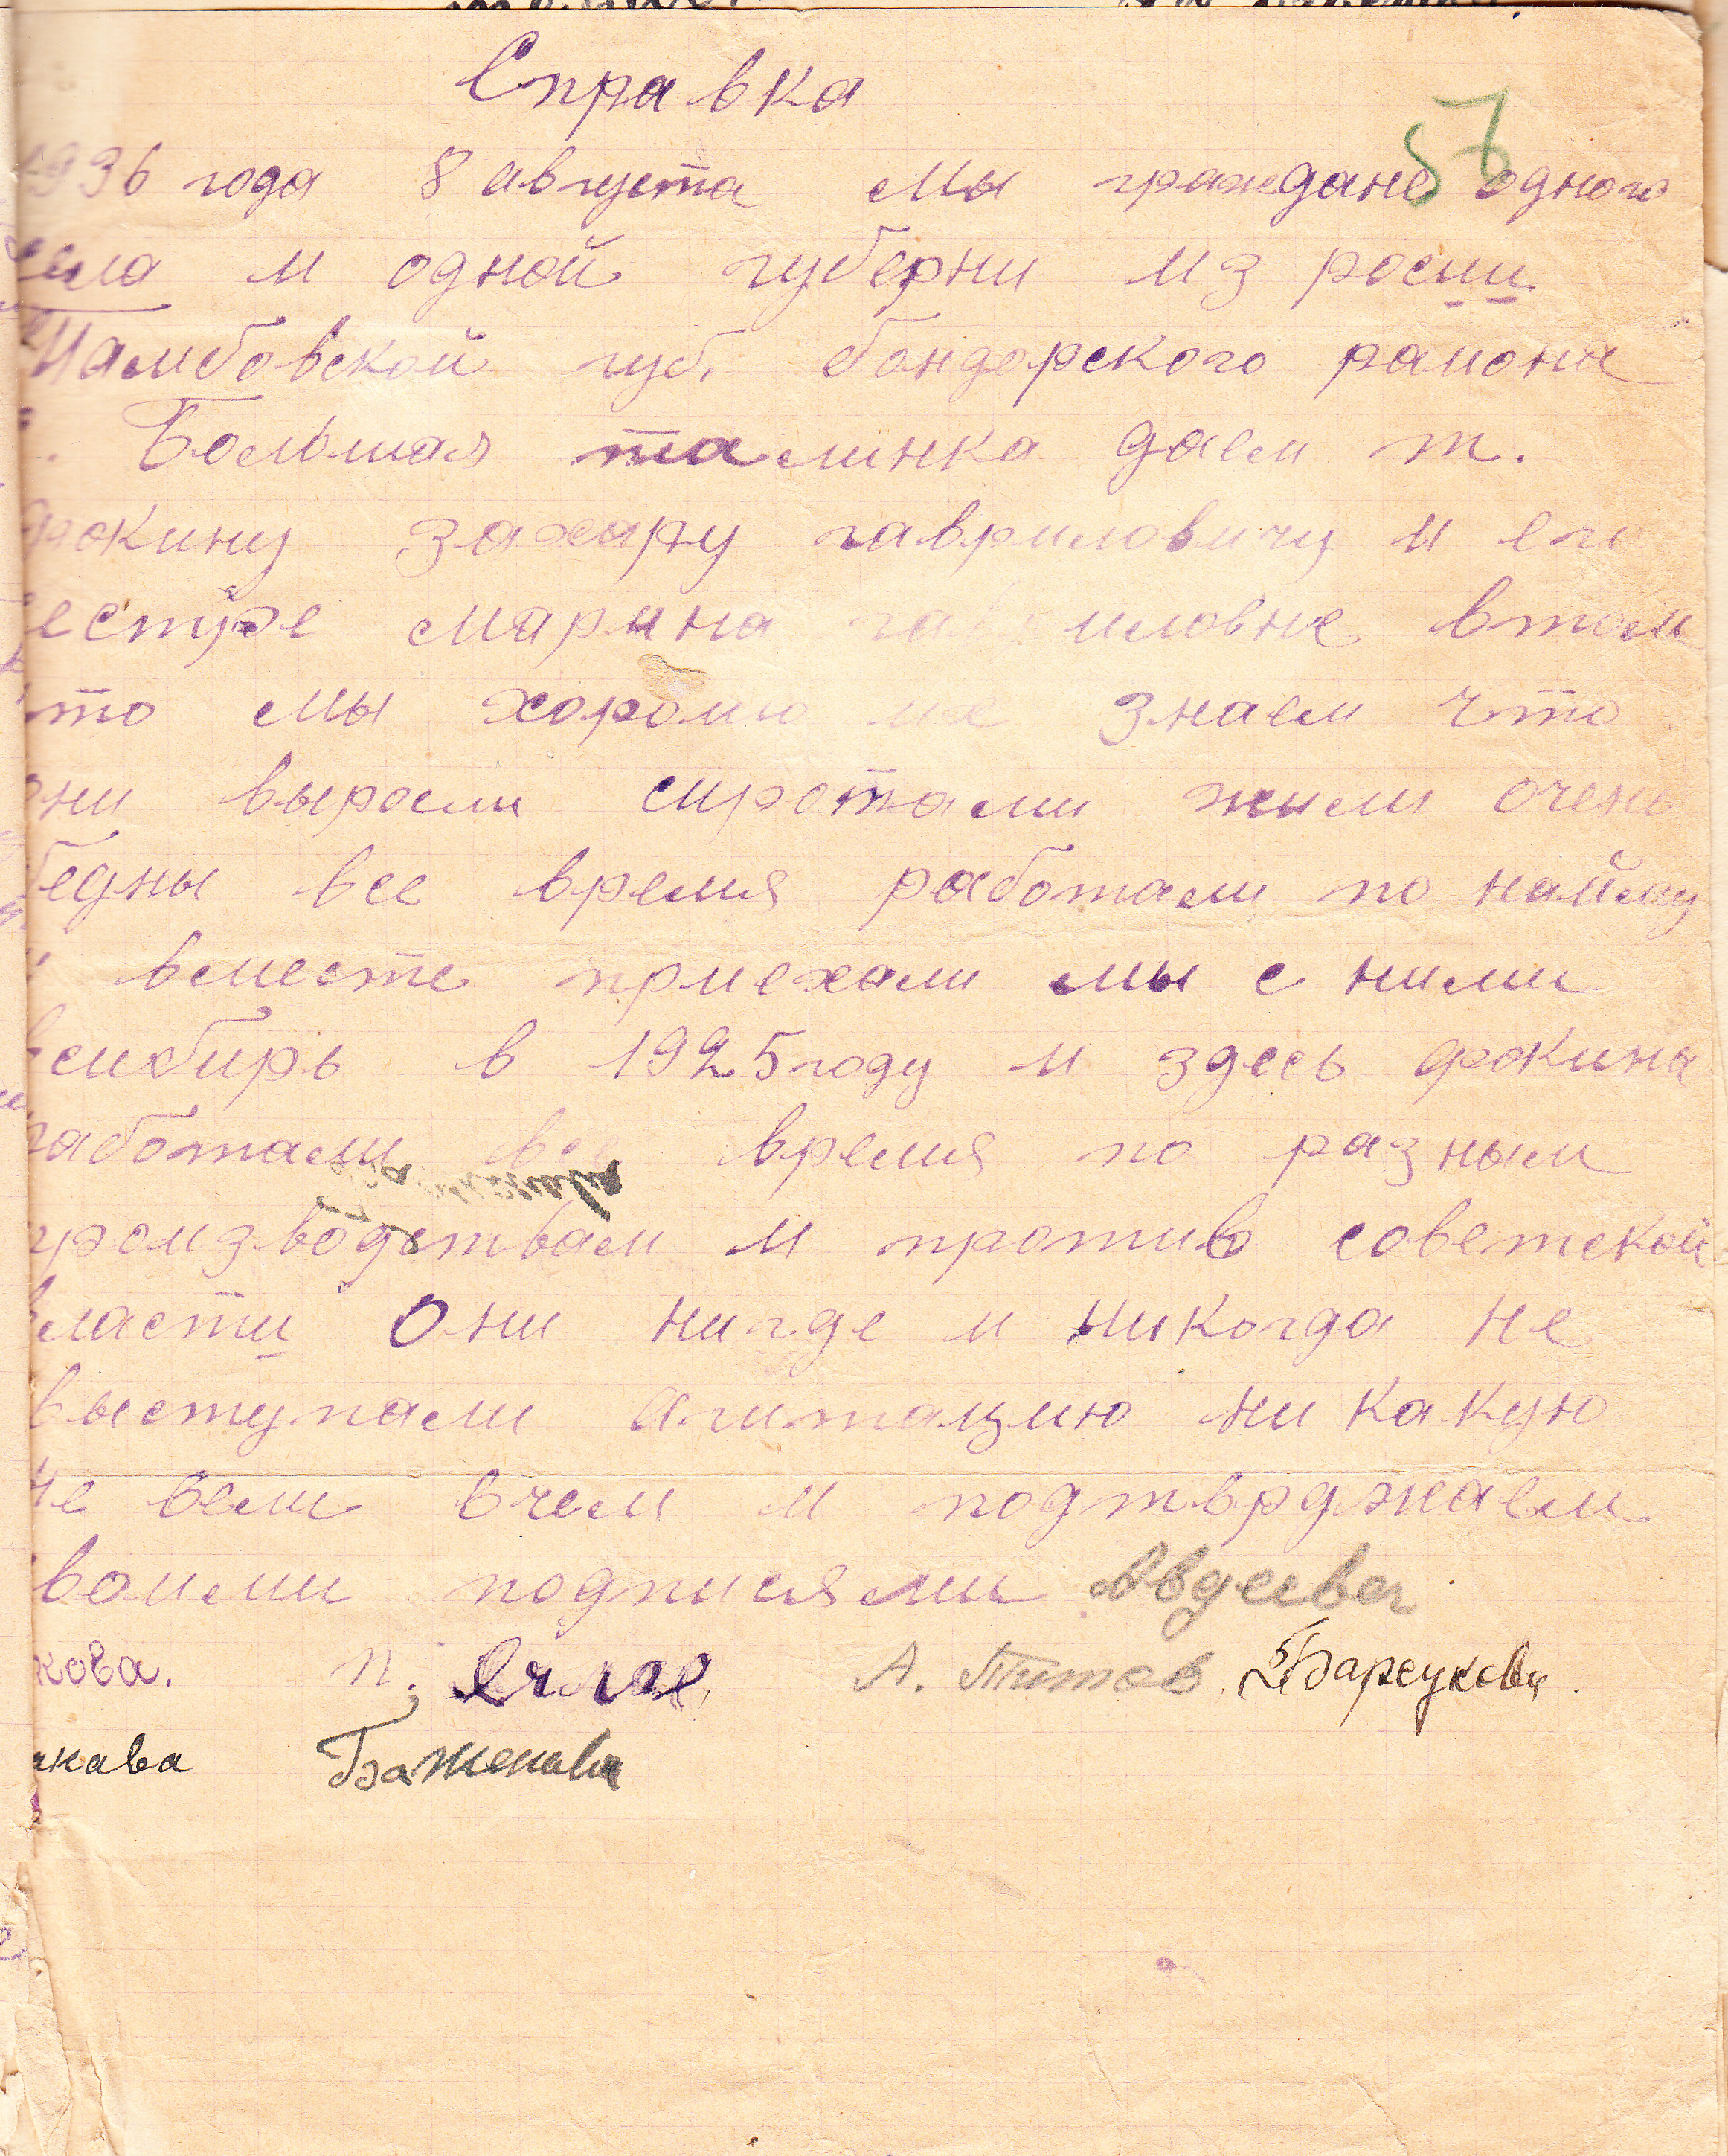 Справка
57
1936 года 8 августа мы граждане одного
села и одной губерни из росии
Тамбовской губ. бондорского раиона
. Большая талинка даем т.
Фокину захару гавриловичу и его
сестре марина гавриловне втом
что мы хорошо их знаем что
они выросли сиротами жили очень
бедны все время работали по найму
и вместе приехали мы с ними
всибирь в 1925 году и здесь фокина
работали все время по разным
производствам и против советской
власти они нигде и никогда не
выступали агитацию ни какую
не вели вчем и подтврджаем
своими подписями Авдеева
кова. п. А. Титов, Барсукова.
кава Баженава